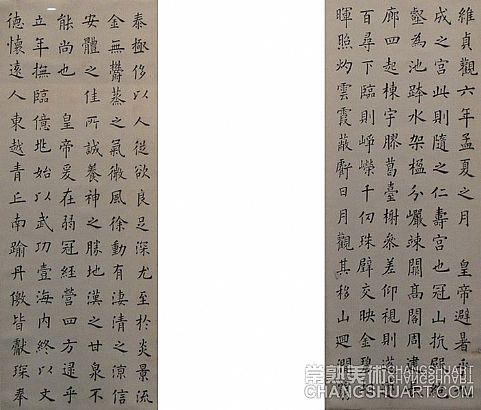 維貞觀六年孟夏之月 皇帝避暑乎
成之宮此則隨之仁壽宮也冠山抗殿
壑為池跨水架楹分巖竦闕高閣周建
廊四起棟宇膠葛臺榭參差仰視則迢
百尋下臨則崢嶸千仞珠璧交映金碧
暉照灼雲霞蔽虧日月觀其移山迴澗
泰極侈以人從欲良足深尤至於炎景流
金無鬱蒸之氣微風徐動有淒清之涼信
安體之佳所誠養神之勝地漢之甘泉不
能尚也 皇帝爰在弱冠經營四方逮乎
立年撫臨億兆始以武功壹海內終以文
德懷遠人東越青丘南踰丹儌皆獻琛奉
常熟美術
CHANGSHUART.COM